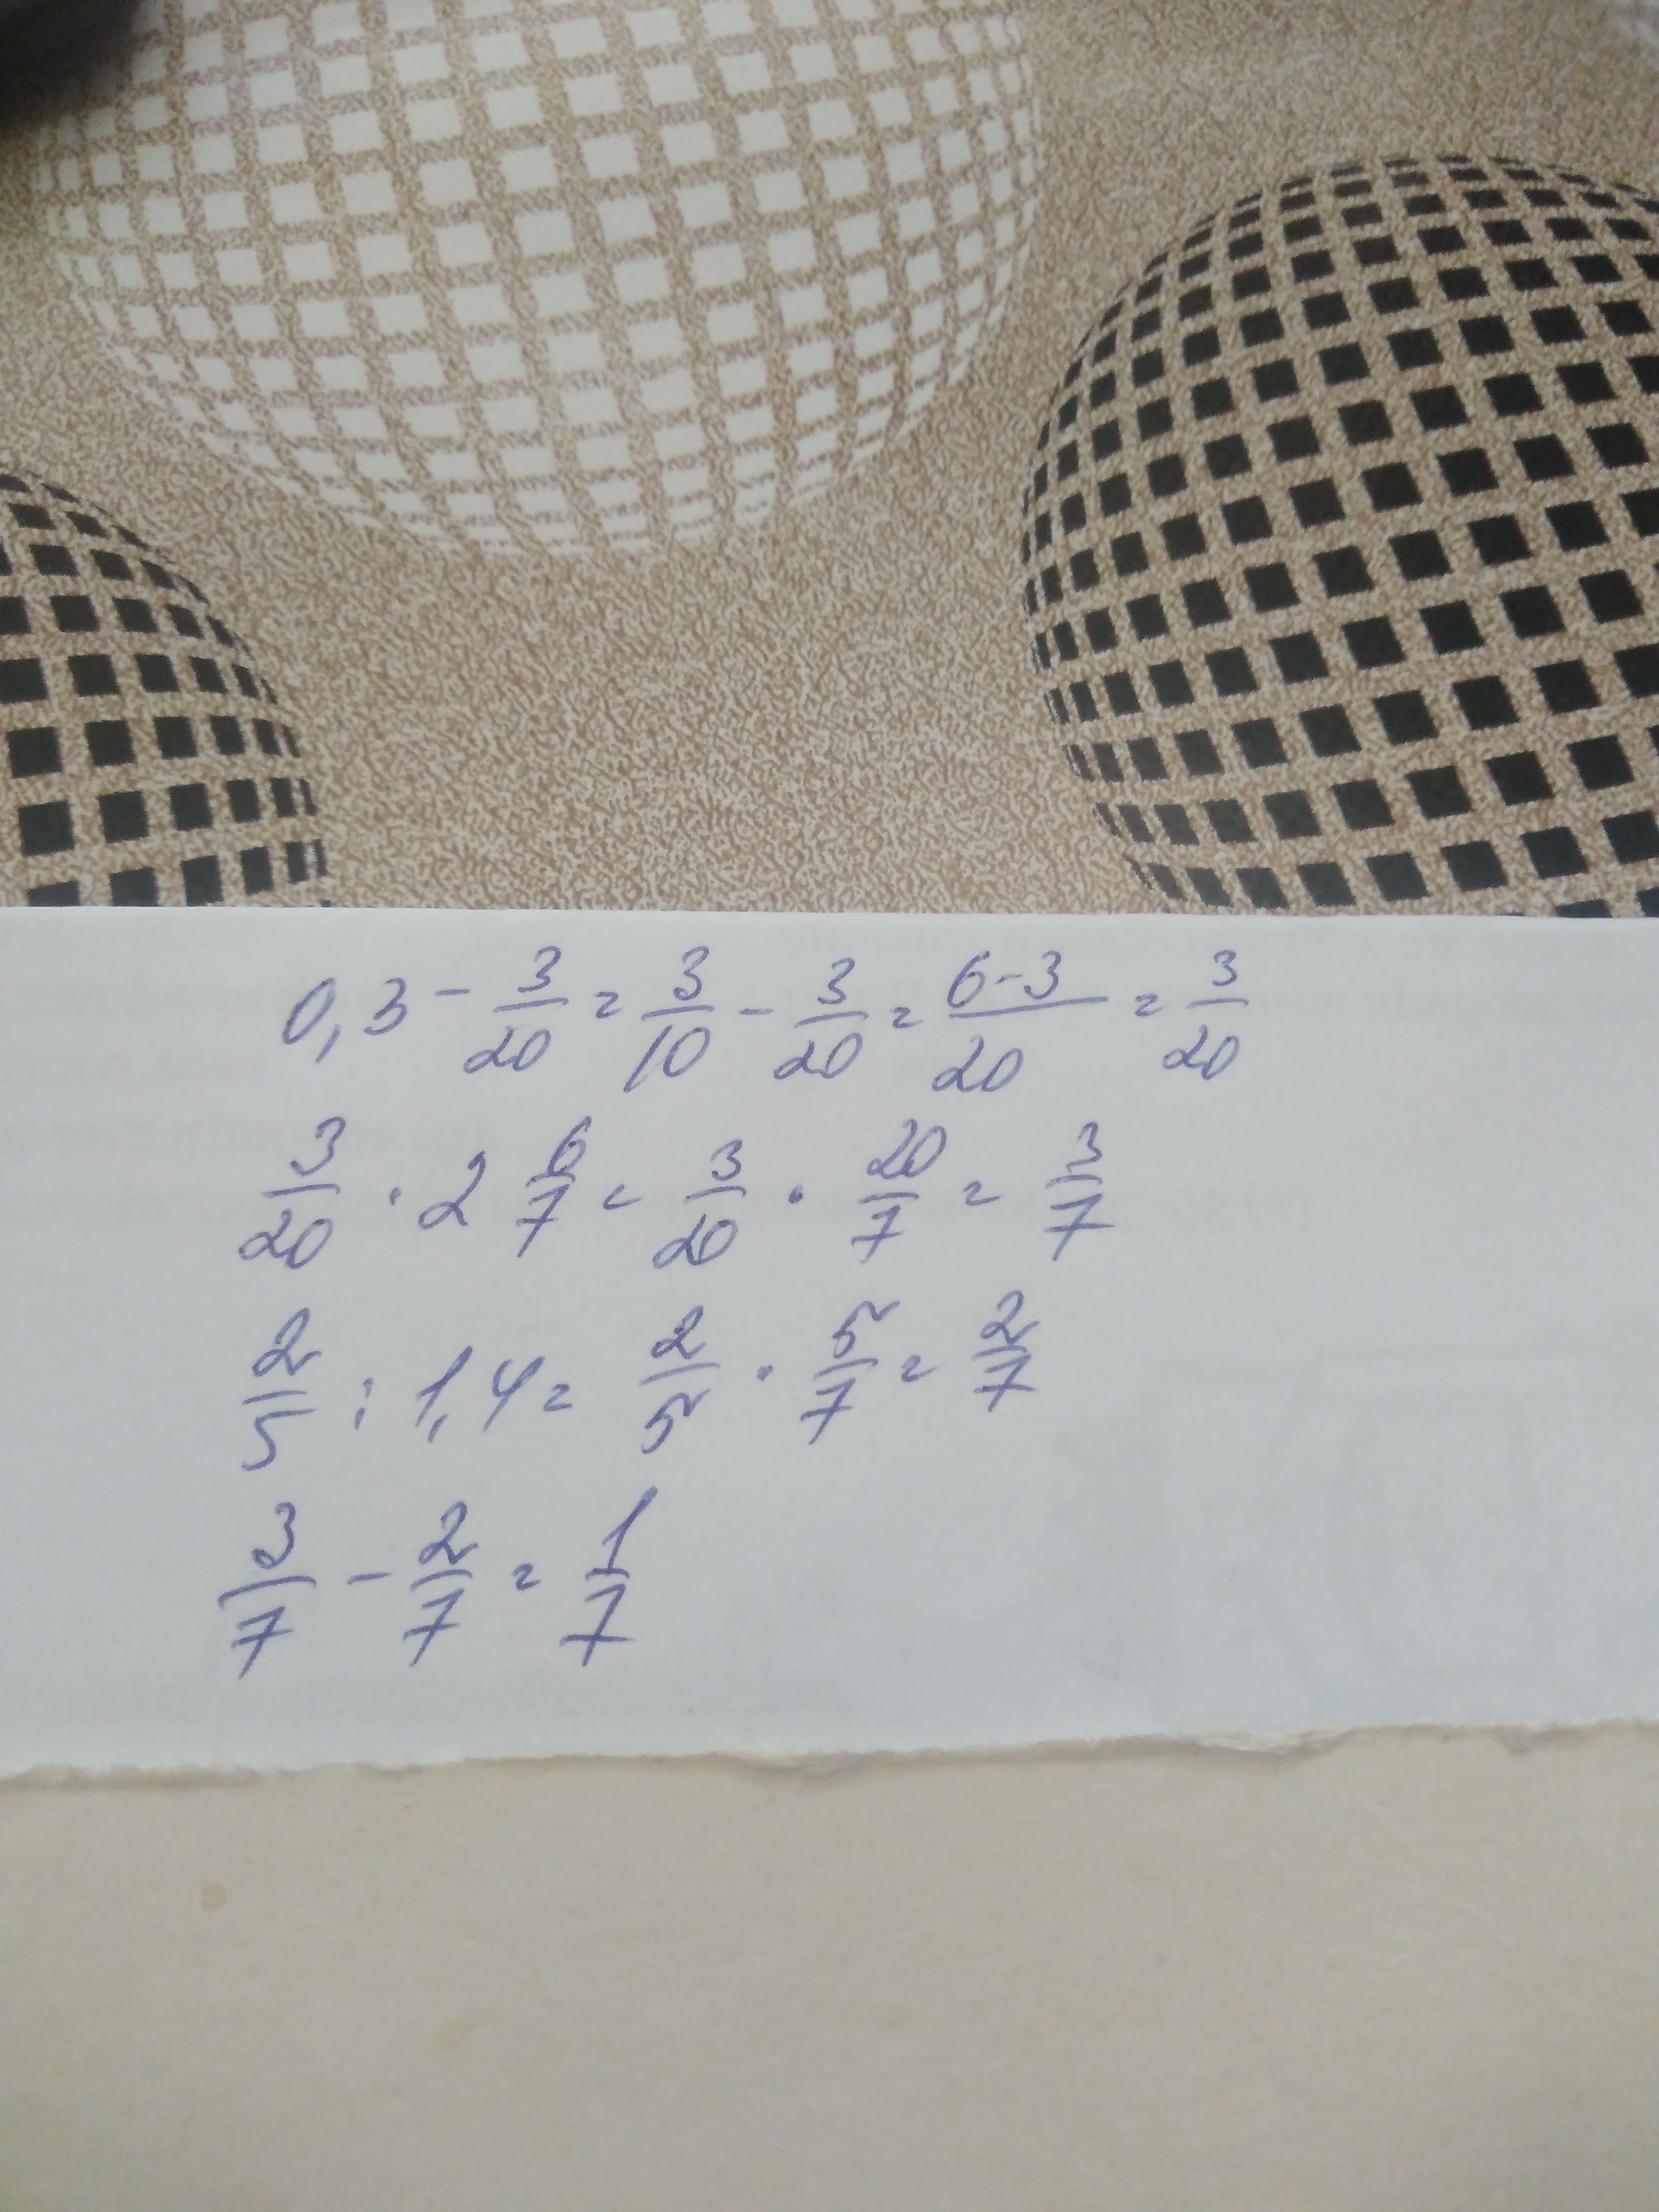 0,3 - 3/20 = 3/10 - 3/20 = 6-3/20 = 3/20
3/20 · 2 6/7 = 3/20 · 20/7 = 3/7
2/5 : 1,4 = 2/5 · 5/7 = 2/7
3/7 - 2/7 = 1/7